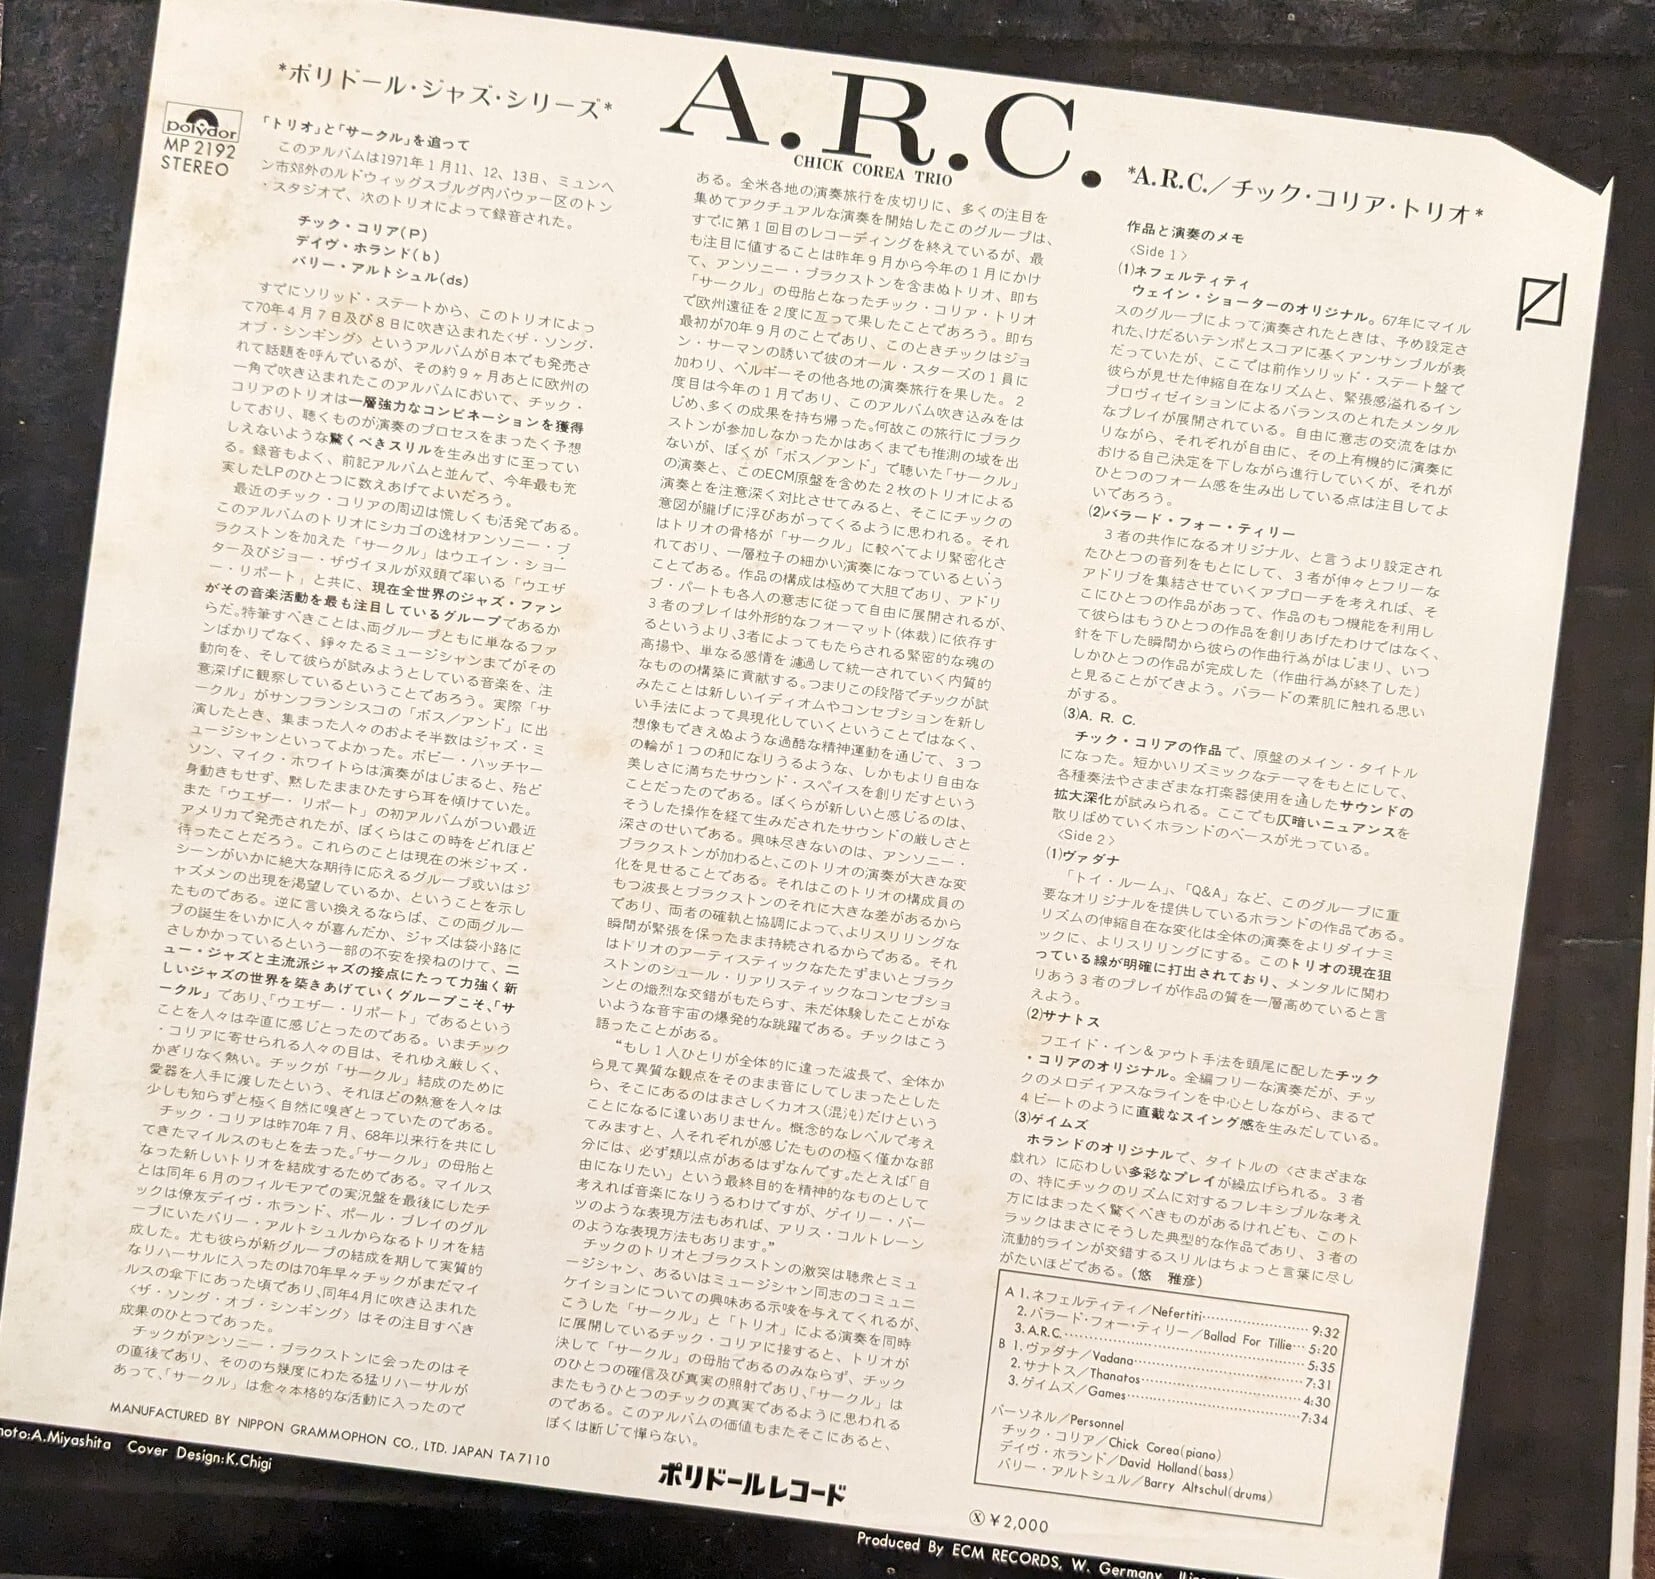 *ポリドール・ジャズ・シリーズ*
A.R.C.
CHICK COREA TRIO
*A.R.C./チック・コリア・トリオ*
polydor
MP 2192
STEREO
「トリオ」と「サークル」を追って
このアルバムは1971年1月11、12、13日、ミュンヘ
ン市郊外のルドウィッグスブルグ内バウァー区のトン
・スタジオで、次のトリオによって録音された。
チック・コリア(P)
デイヴ・ホランド(b)
バリー・アルトシュル(ds)
すでにソリッド・ステートから、このトリオによっ
て70年4月7日及び8日に吹き込まれた〈ザ・ソング・
オブ・シンギング〉というアルバムが日本でも発売さ
れて話題を呼んでいるが、その約9ヶ月あとに欧州の
一角で吹き込まれたこのアルバムにおいて、チック・
コリアのトリオは一層強力なコンビネーションを獲得
しており、聴くものが演奏のプロセスをまったく予想
しえないような驚くべきスリルを生み出すに至ってい
る。録音もよく、前記アルバムと並んで、今年最も充
実したLPのひとつに数えあげてよいだろう。
最近のチック・コリアの周辺は慌しくも活発である。
このアルバムのトリオにシカゴの逸材アンソニー・ブ
ラクストンを加えた「サークル」はウエイン・ショー
ター及びジョー・ザヴィヌルが双頭で率いる「ウエザ
ー・リポート」と共に、現在全世界のジャズ・ファン
がその音楽活動を最も注目しているグループであるか
らだ。特筆すべきことは、両グループともに単なるファ
ンばかりでなく、錚々たるミュージシャンまでがその
動向を、そして彼らが試みようとしている音楽を、注
意深げに観察しているということであろう。実際「サ
ークル」がサンフランシスコの「ボス/アンド」に出
演したとき、集まった人々のおよそ半数はジャズ・ミ
ュージシャンといってよかった。ボビー・ハッチャー
ソン、マイク・ホワイトらは演奏がはじまると、殆ど
身動きもせず、黙したままひたすら耳を傾けていた。
また「ウエザー・リポート」の初アルバムがつい最近
アメリカで発売されたが、ぼくらはこの時をどれほど
待ったことだろう。これらのことは現在の米ジャズ・
シーンがいかに絶大な期待に応えるグループ或いはジ
ャズメンの出現を渇望しているか、ということを示し
たものである。逆に言い換えるならば、この両グルー
プの誕生をいかに人々が喜んだか、ジャズは袋小路に
さしかかっているという一部の不安を揆ねのけて、二
ュー・ジャズと主流派ジャズの接点にたって力強く新
しいジャズの世界を築きあげていくグループこそ、「サ
ークル」であり、「ウエザー・リポート」であるという
ことを人々は卒直に感じとったのである。いまチック
・コリアに寄せられる人々の目は、それゆえ厳しく、
かぎりなく熱い。チックが「サークル」結成のために
愛器を人手に渡したという、それほどの熱意を人々は
少しも知らずと極く自然に嗅ぎとっていたのである。
チック・コリアは昨70年7月、68年以来行を共にし
てきたマイルスのもとを去った。「サークル」の母胎と
なった新しいトリオを結成するためである。マイルス
とは同年6月のフィルモアでの実況盤を最後にしたチ
ックは僚友デイヴ・ホランド、ポール・ブレイのグル
ープにいたバリー・アルトシュルからなるトリオを結
成した。尤も彼らが新グループの結成を期して実質的
なリハーサルに入ったのは70年早々チックがまだマイ
ルスの傘下にあった頃であり、同年4月に吹き込まれた
〈ザ・ソング・オブ・シンギング〉はその注目すべき
成果のひとつであった。
チックがアンソニー・ブラクストンに会ったのはそ
の直後であり、そののち幾度にわたる猛リハーサルが
あって、「サークル」は愈々本格的な活動に入ったので
ある。全米各地の演奏旅行を皮切りに、多くの注目を
集めてアクチュアルな演奏を開始したこのグループは、
すでに第1回目のレコーディングを終えているが、最
も注目に値することは昨年9月から今年の1月にかけ
て、アンソニー・ブラクストンを含まぬトリオ、即ち
「サークル」の母胎となったチック・コリア・トリオ
で欧州遠征を2度に亙って果したことであろう。即ち
最初が70年9月のことであり、このときチックはジョ
ン・サーマンの誘いで彼のオール・スターズの1員に
加わり、ベルギーその他各地の演奏旅行を果した。2
度目は今年の1月であり、このアルバム吹き込みをは
じめ、多くの成果を持ち帰った。何故この旅行にブラク
ストンが参加しなかったかはあくまでも推測の域を出
ないが、ぼくが「ボス/アンド」で聴いた「サークル」
の演奏と、このECM原盤を含めた2枚のトリオによる
演奏とを注意深く対比させてみると、そこにチックの
意図が朧げに浮びあがってくるように思われる。それ
はトリオの骨格が「サークル」に較べてより緊密化さ
れており、一層粒子の細かい演奏になっているという
ことである。作品の構成は極めて大胆であり、アドリ
ブ・パートも各人の意志に従って自由に展開されるが、
3者のプレイは外形的なフォーマット(体裁)に依存す
るというより、3者によってもたらされる緊密的な魂の
高揚や、単なる感情を濾過して統一されていく内質的
なものの構築に貢献する。つまりこの段階でチックが試
みたことは新しいイディオムやコンセプションを新し
い手法によって具現化していくということではなく、
想像もできえぬような過酷な精神運動を通じて、3つ
の輪が1つの和になりうるような、しかもより自由な
美しさに満ちたサウンド・スペイスを創りだすという
ことだったのである。ぼくらが新しいと感じるのは、
そうした操作を経て生みだされたサウンドの厳しさと
深さのせいである。興味尽きないのは、アンソニー・
ブラクストンが加わると、このトリオの演奏が大きな変
化を見せることである。それはこのトリオの構成員の
もつ波長とブラクストンのそれに大きな差があるから
であり、両者の確執と協調によって、よりスリリングな
瞬間が緊張を保ったまま持続されるからである。それ
はトリオのアーティスティックなたたずまいとブラク
ストンのシュール・リアリスティックなコンセプショ
ンとの熾烈な交錯がもたらす、未だ体験したことがな
いような音宇宙の爆発的な跳躍である。チックはこう
語ったことがある。
“もし1人ひとりが全体的に違った波長で、全体か
ら見て異質な観点をそのまま音にしてしまったとした
ら、そこにあるのはまさしくカオス(混沌)だけという
ことになるに違いありません。概念的なレベルで考え
てみますと、人それぞれが感じたものの極く僅かな部
分には、必ず類以点があるはずなんです。たとえば「自
由になりたい」という最終目的を精神的なものとして
考えれば音楽になりうるわけですが、ゲイリー・バー
ツのような表現方法もあれば、アリス・コルトレーン
のような表現方法もあります。”
チックのトリオとブラクストンの激突は聴衆とミュ
ージシャン、あるいはミュージシャン同志のコミュニ
ケイションについての興味ある示唆を与えてくれるが、
こうした「サークル」と「トリオ」による演奏を同時
に展開しているチック・コリアに接すると、トリオが
決して「サークル」の母胎であるのみならず、チック
のひとつの確信及び真実の照射であり、「サークル」は
またもうひとつのチックの真実であるように思われる
のである。このアルバムの価値もまたそこにあると、
ぼくは断じて憚らない。
作品と演奏のメモ
〈Side 1〉
(1)ネフェルティティ
ウェイン・ショーターのオリジナル。67年にマイル
スのグループによって演奏されたときは、予め設定さ
れた、けだるいテンポとスコアに基くアンサンブルが表
だっていたが、ここでは前作ソリッド・ステート盤で
彼らが見せた伸縮自在なリズムと、緊張感溢れるイン
プロヴィゼイションによるバランスのとれたメンタル
なプレイが展開されている。自由に意志の交流をはか
りながら、それぞれが自由に、その上有機的に演奏に
おける自己決定を下しながら進行していくが、それが
ひとつのフォーム感を生み出している点は注目してよ
いであろう。
(2)バラード・フォー・ティリー
3者の共作になるオリジナル、と言うより設定され
たひとつの音列をもとにして、3者が伸々とフリーな
アドリブを集結させていくアプローチを考えれば、そ
こにひとつの作品があって、作品のもつ機能を利用し
て彼らはもうひとつの作品を創りあげたわけではなく、
針を下した瞬間から彼らの作曲行為がはじまり、いつ
しかひとつの作品が完成した(作曲行為が終了した)
と見ることができよう。バラードの素肌に触れる思い
がする。
(3)A. R. C.
チック・コリアの作品で、原盤のメイン・タイトル
になった。短かいリズミックなテーマをもとにして、
各種奏法やさまざまな打楽器使用を通したサウンドの
拡大深化が試みられる。ここでも仄暗いニュアンスを
散りばめていくホランドのベースが光っている。
〈Side 2〉
(1)ヴァダナ
「トイ・ルーム」、「Q&A」など、このグループに重
要なオリジナルを提供しているホランドの作品である。
リズムの伸縮自在な変化は全体の演奏をよりダイナミ
ックに、よりスリリングにする。このトリオの現在狙
っている線が明確に打出されており、メンタルに関わ
りあう3者のプレイが作品の質を一層高めていると言
えよう。
(2)サナトス
フエイド・イン&アウト手法を頭尾に配したチック
・コリアのオリジナル。全編フリーな演奏だが、チッ
クのメロディアスなラインを中心としながら、まるで
4ビートのように直截なスイング感を生みだしている。
(3)ゲイムズ
ホランドのオリジナルで、タイトルの〈さまざまな
戯れ〉に応わしい多彩なプレイが繰広げられる。3者
の、特にチックのリズムに対するフレキシブルな考え
方にはまったく驚くべきものがあるけれども、このト
ラックはまさにそうした典型的な作品であり、3者の
流動的ラインが交錯するスリルはちょっと言葉に尽し
がたいほどである。(悠 雅彦)
A 1.ネフェルティティ/Nefertiti 9:32
2.バラード・フォー・ティリー/Ballad For Tillie 5:20
3.A.R.C. 5:35
B 1.ヴァダナ/Vadana 7:31
2.サナトス/Thanatos 4:30
3.ゲイムズ/Games 7:34
パーソネル/Personnel
チック・コリア/Chick Corea(piano)
デイヴ・ホランド/David Holland(bass)
バリー・アルトシュル/Barry Altschul(drums)
MANUFACTURED BY NIPPON GRAMMOPHON CO., LTD. JAPAN TA7110
ポリドールレコード
Ⓧ¥2,000
A.Miyashita Cover Design:K.Chigi
Produced By ECM RECORDS, W. Germany